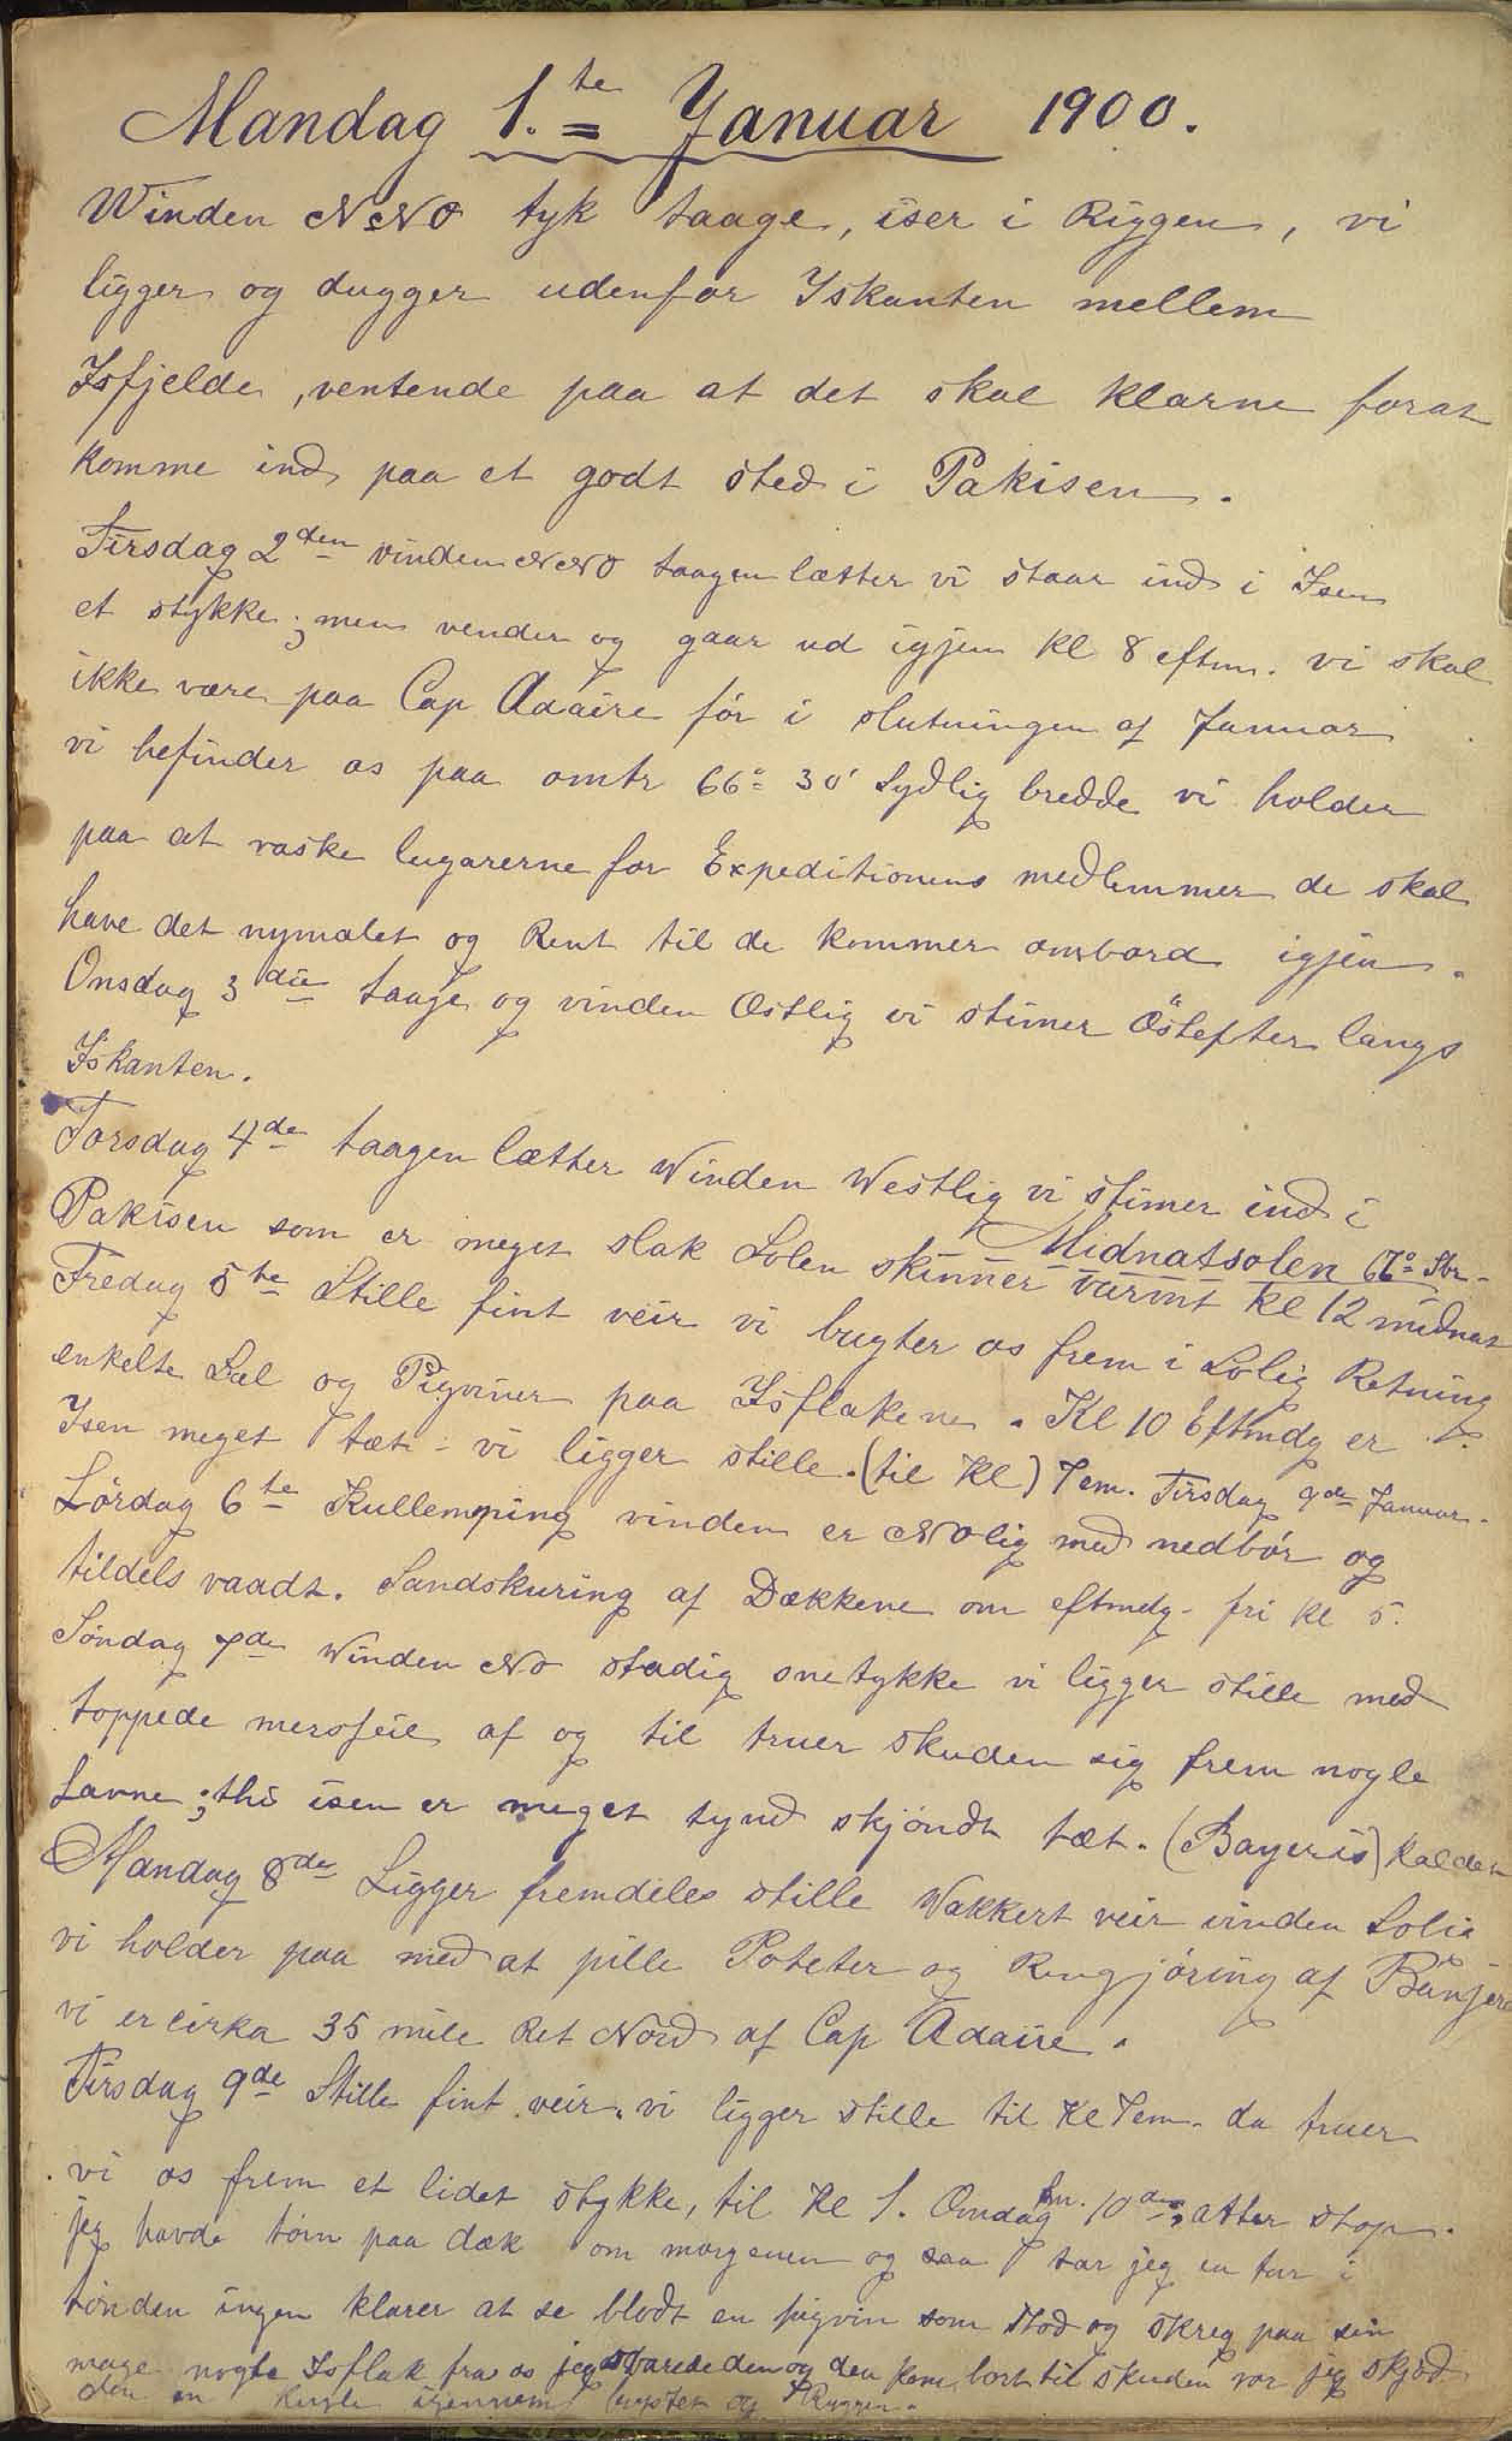 Mandag 1.te Januar 1900.
Winden NNO tyk taage, iser i Riggen, vi
ligger og dugger udenfor Iskanten mellem
Isfjelde, ventende paa at det skal klarne forat
komme ind paa et godt sted i Pakisen.
Tirsdag 2den vinden NNO taagen lætter vi staar ind i Isen
et stykke; men vender og gaar ud igjen Kl 8 eftm. vi skal
ikke være paa Cap Adaire før i slutningen af Januar
vi befinder os paa omtr 66° 30' Sydlig bredde vi holder
paa at vaske lugarerne for Expeditionens medlemmer de skal
have det nymalet og Rent til de kommer ombord igjen.
Onsdag 3die taage og vinden Østlig vi stimer Østefter langs
Iskanten.
Torsdag 4de taagen lætter Winden Westlig vi stimer ind i
Midnatsolen 67° Sbr.
Pakisen som er meget slak Solen skinner varmt Kl 12 midnat
Fredag 5te Stille fint veir vi bugter os frem i Solig Retning
enkelte Sæl og Pigviner paa Isflakene. Kl 10 Eftmdg er
Isen meget tæt - vi ligger stille. (til Kl) 7 em. Tirsdag 9de Januar.
Lördag 6te Kullemping vinden er NOlig med nedbør og
tildels vaadt. Sandskuring af Dækkene om eftmdg - fri kl 5.
Søndag 7de Winden NO stadig snetykke vi ligger stille med
toppede mersseil af og til truer skuden sig frem nogle
Favne; thi isen er meget tynd skjøndt tæt. (Bayeris) kaldet
Mandag 8de Ligger fremdeles stille Wakkert veir vinden Solig
vi holder paa med at pille Poteter og Rengjøring af Banjeren
vi er cirka 35 mile Ret Nord af Cap Adaire.
Tirsdag 9de Stille fint veir. vi ligger stille til Kl 7 em. da truer
vi os frem et lidet stykke, til Kl 1. Onsdag fm. 10de; atter stop.
jeg havde törn paa dæk om morgenen og saa tar jeg en tur i
tønden ingen klarer at se blodt en pigvin som stod og skreg paa sin
mage nogle Isflak fra os jeg svarede den og den kom bort til skuden vor jeg skjød
den en kugle igennem brystet og Ryggen.